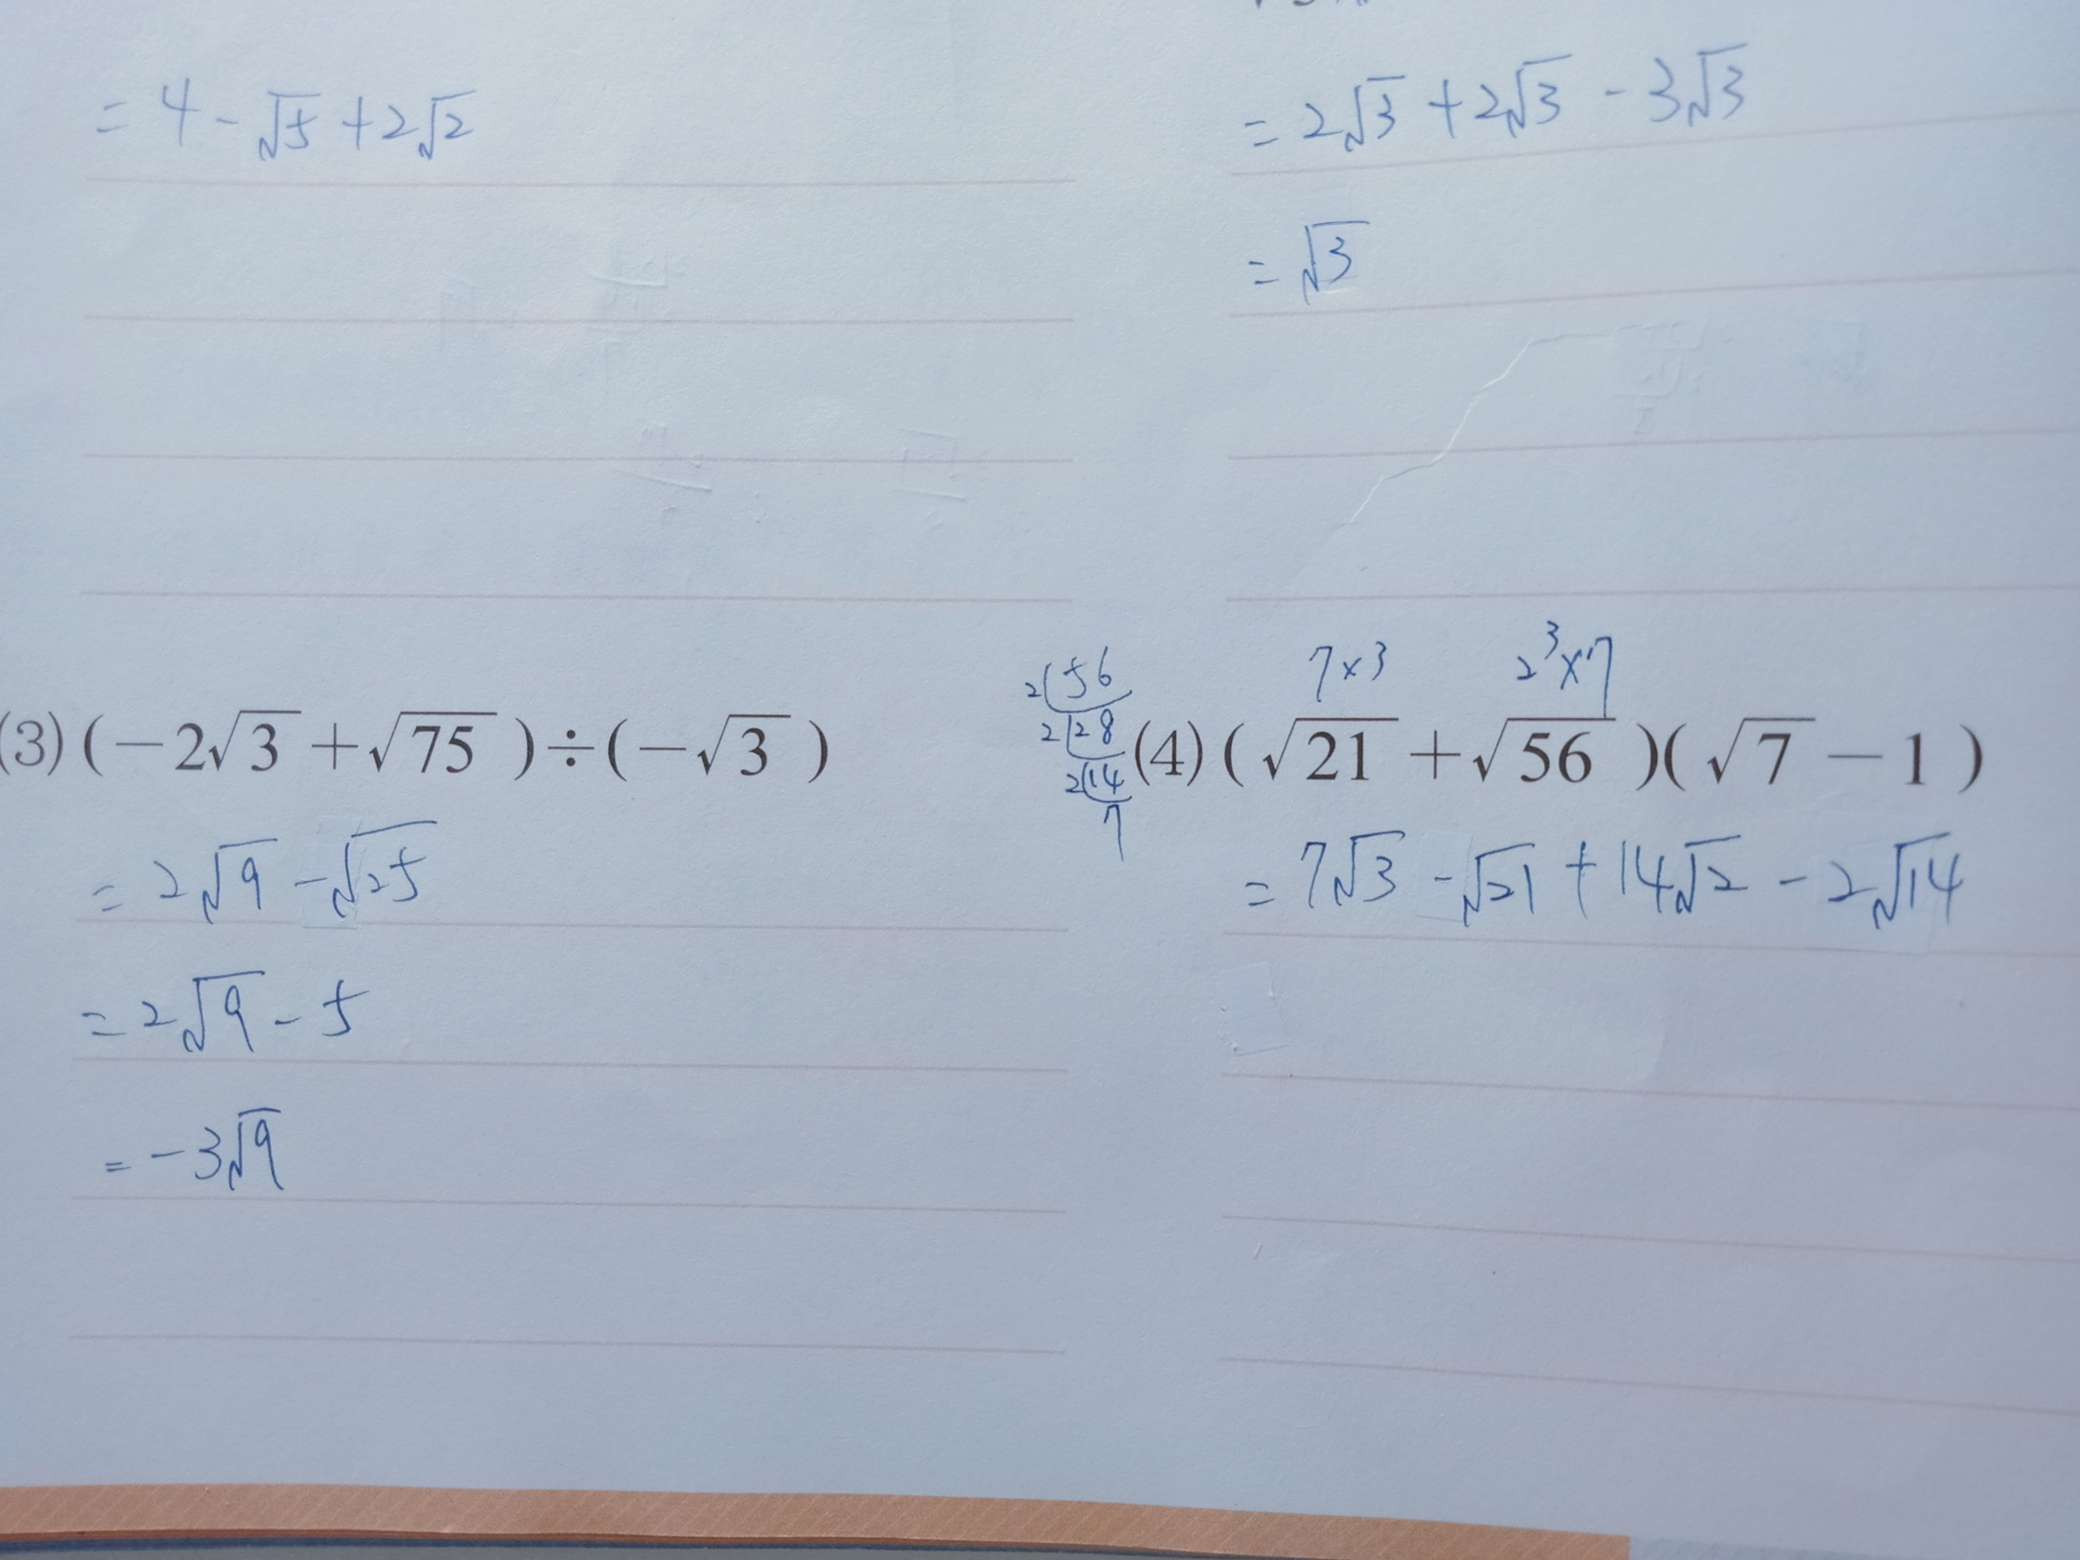 = 4 - √5 + 2√2
= 2√3 + 2√3 - 3√3
= √3
(3) (-2√3 + √75) ÷ (-√3)
= 2√9 - √25
= 2√9 - 5
= -3√9
2 56
2 28
2 14
7
7×3 2³×7
(4) (√21 + √56)(√7 - 1)
= 7√3 - √21 + 14√2 - 2√14